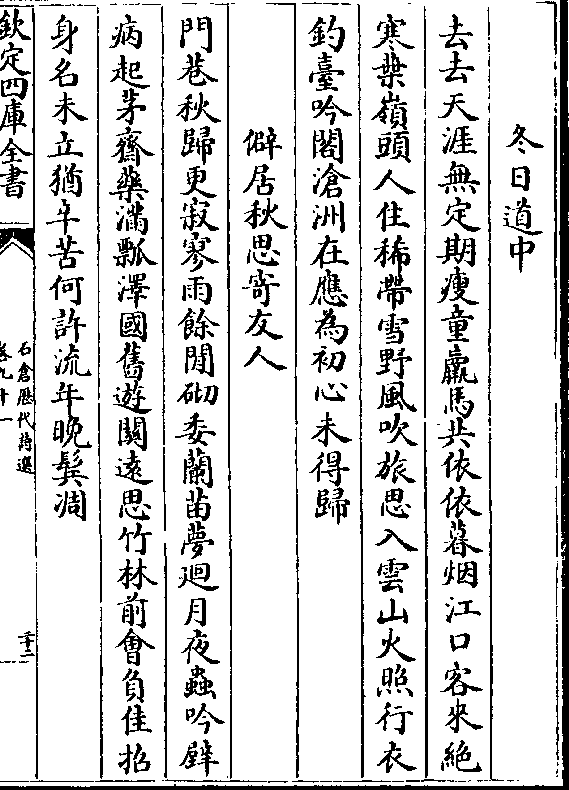 冬日道中
去去天涯無定期瘦童羸馬共依依暮烟江口客來絶
寒葉嶺頭人住稀帶雪野風吹旅思入雲山火照行衣
釣臺吟閣滄洲在應為初心未得歸
僻居秋思寄友人
門巷秋歸更寂寥雨餘閒砌委蘭苗夢廻月夜蟲吟壁
病起茅齋藥滿瓢澤國舊遊關遠思竹林前會負佳招
身名未立猶辛苦何許流年晚鬓凋
欽定四庫全書
石倉歴代詩選
卷九十一
三十二